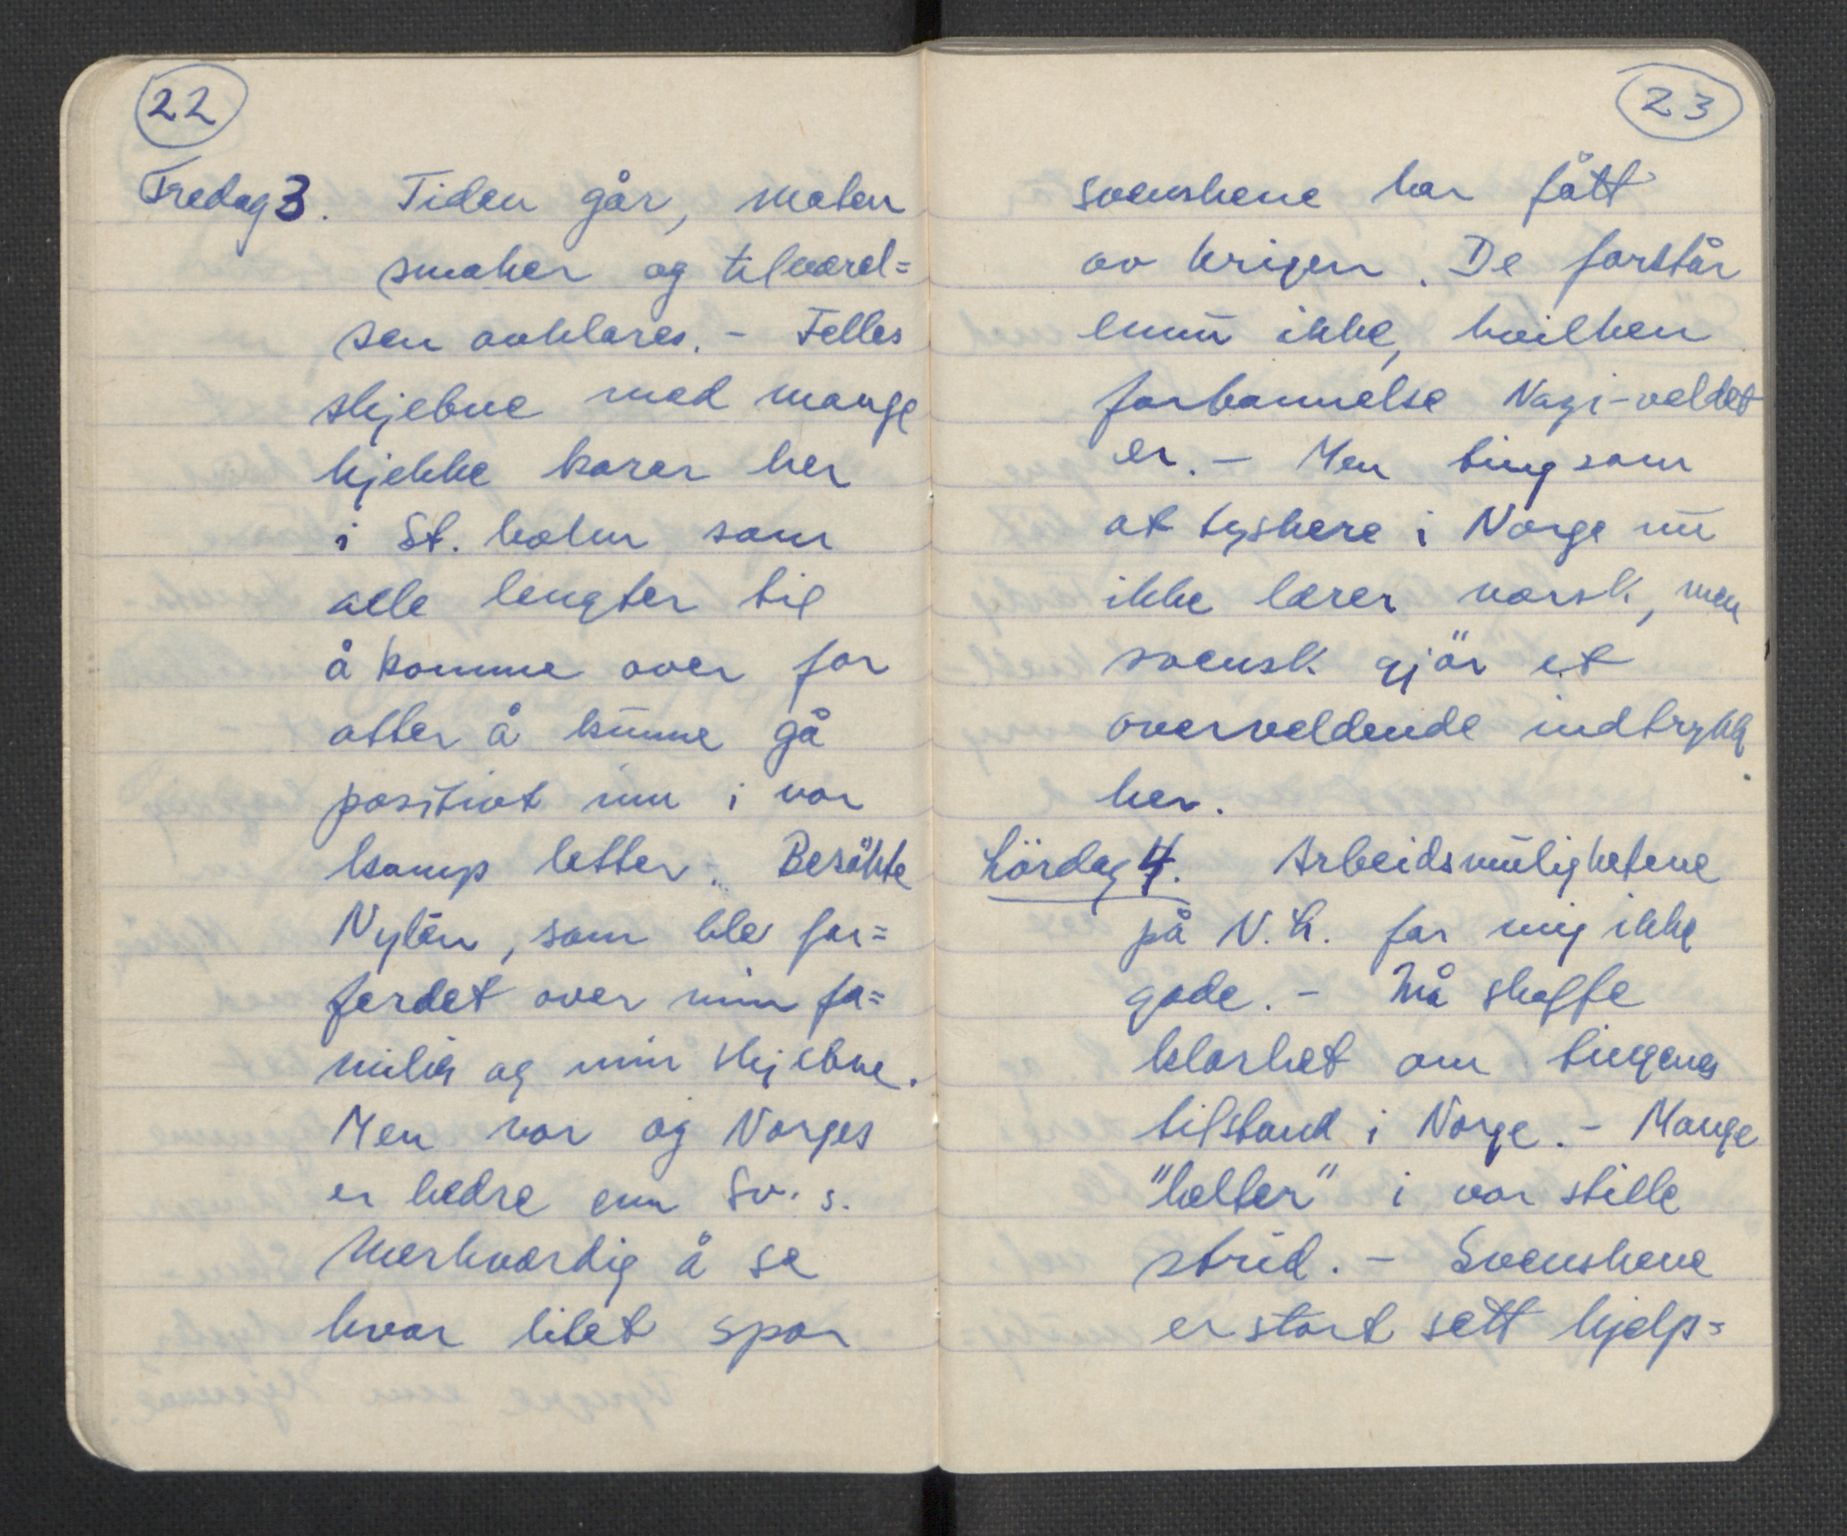 22
Fredag 3. Tiden går, maten
smaker og tilværel=
sen avklares. - Felles
skjebne med mange
kjekke karer her
i St. holm som
alle lengter til
å komme over for
atter å kunne gå
positivt inn i vor
kamp etter. Besökte
Nylén, som ble for=
ferdet over min fa=
milies og min skjebne.
Men vor og Norges
er bedre enn Sv. s.
Merkværdig å se
hvor litet spor
23
svenskene har fått
av krigen. De forstår
ennu ikke, hvilken
forbannelse Nazi-veldet
er. - Men ting som
at tyskere i Norge nu
ikke lærer norsk, men
svensk gjör et
overveldende indtrykk
her.
Lördag 4. Arbeidsmulighetene
på N. L. for mig ikke
gode. - Må skaffe
klarhet om tingenes
tilstand i Norge. - Mange
"helter" i vor stille
strid. - Svenskene
er stort sett hjelp=